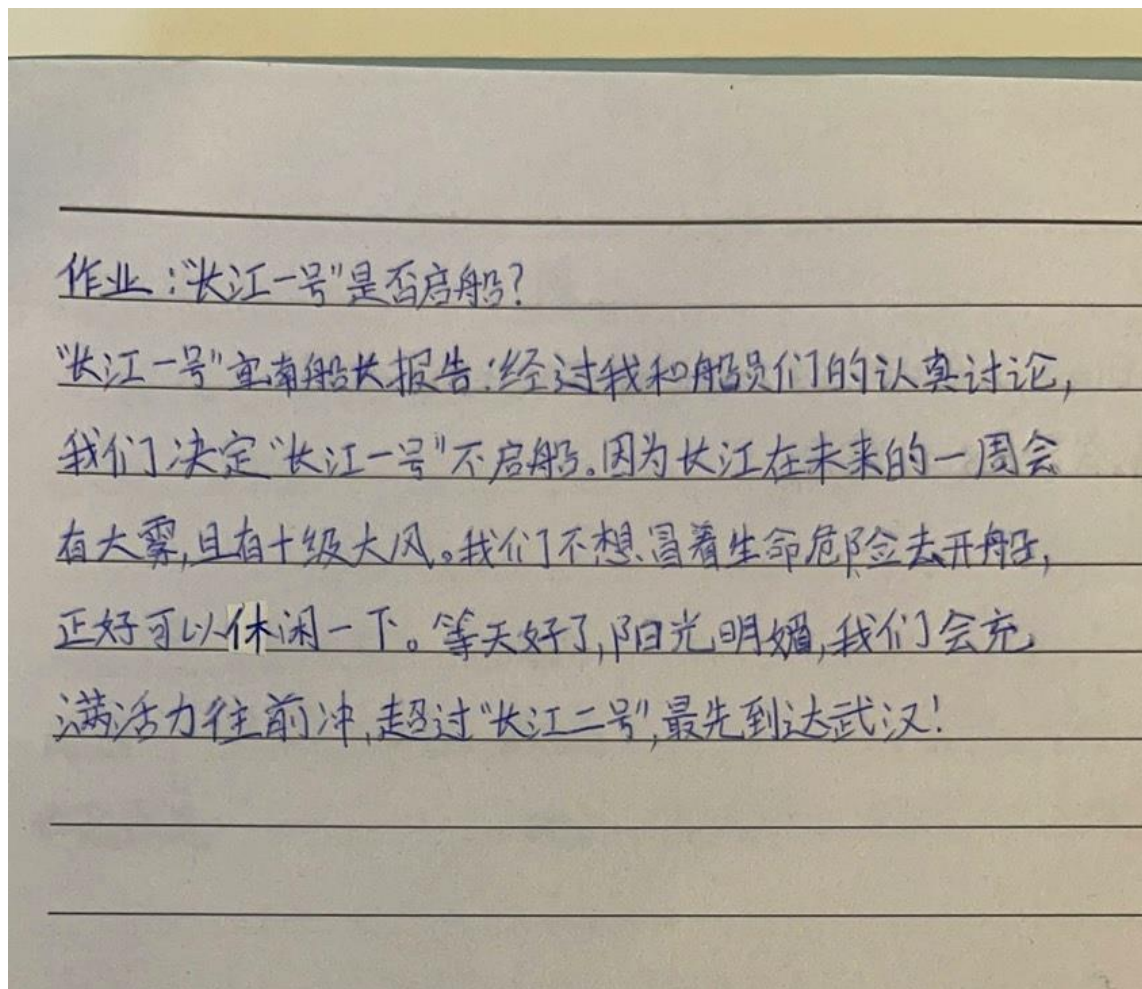 作业:“长江一号”是否启船?
“长江一号”南船长报告:经过我和船员们的认真讨论,
我们决定“长江一号”不启船。因为长江在未来的一周会
有大雾,且有十级大风。我们不想冒着生命危险去开船,
正好可以休闲一下。等天好了,阳光明媚,我们会充
满活力往前冲,超过“长江二号”,最先到达武汉!